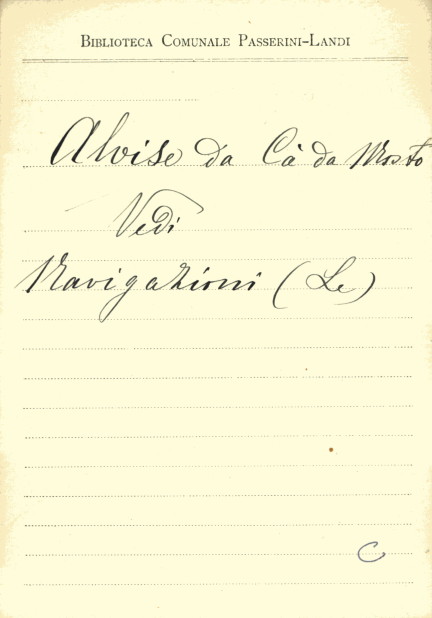 Biblioteca Comunale Passerini-Landi
Alvise da Cà da Mosto
Vedi
Navigazioni (Le)
C